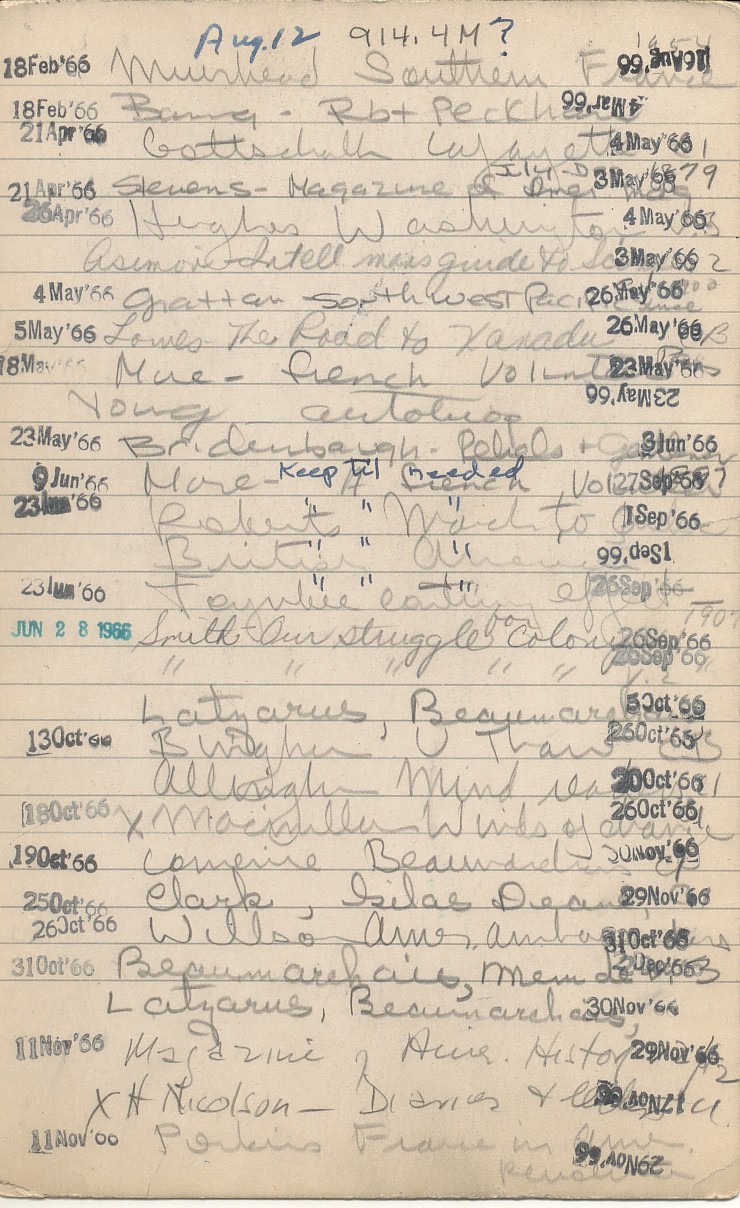 Aug. 12 914.4M?
18Feb'66 Muirhead Southern France
18Feb'66 - Rbt Peckham 4Mar'66
21Apr'66 Gottschalk Lafayette 4May'66
July-D
21Apr'66 Stevens - Magazine of Amer 3May'66 79
26Apr'66 Hughes Washington 4May'66
Asimov - Intell mans guide to 3May'66 2
4May'66 Grattan Southwest Pacific 26May'66
5May'66 Lowes The Road to Xanadu 26May'66 B
18May More - French Volunteers 23May'66
Young autobiog 23May'66
23May'66 Bridenbaugh - Rebels + Gentlemen 3Jun'66
Keep til needed
9Jun'66 More - French Vol 27Sep'66
23Jun'66 Roberts " " March to " 1Sep'66
British " " " 1Sep'66
23Jun'66 Toynbee " " " 26Sep'66
1907
JUN 28 1966 Smith Our struggle for Colony 26Sep'66
" " " " " " v. 2 26Sep'66
Latzarus, Beaumarchais 5Oct'66
13Oct'66 Bingham U Thant 26Oct'66 B
Allingham Mind readers 20Oct'66
18Oct'66 X Macmillan Winds of change 26Oct'66
19Oct'66 Lomenie Beaumarchais Nov'66
25Oct'66 Clark, Silas Deane, 29Nov'66
26Oct'66 Willson Amer. ambassadors 31Oct'66
31Oct'66 Beaumarchais, Mem de 2Dec'66 B
Latzarus, Beaumarchais, 30Nov'66
11Nov'66 Magazine of Amer. History 29Nov'66
X H Nicolson - Diaries & 17Nov'66
11Nov'66 Perkins France in Amer. 29Nov'66
Revolution